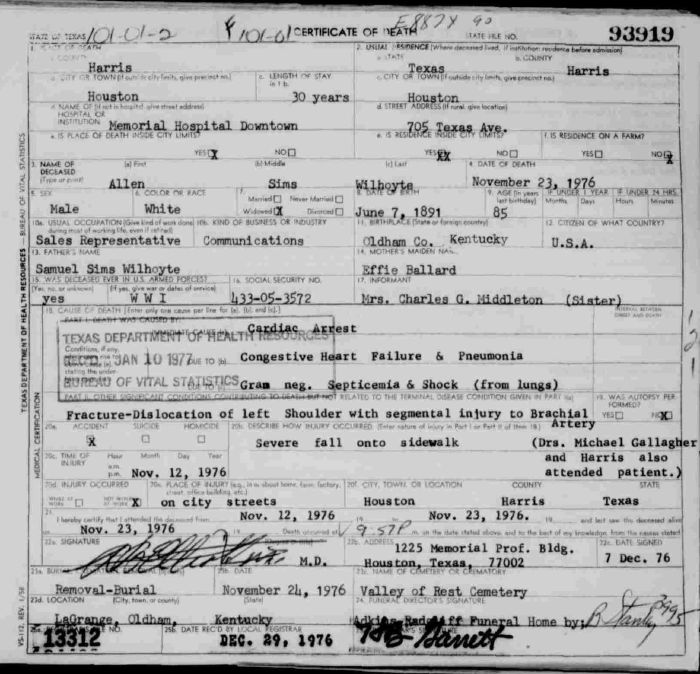 STATE OF TEXAS 101-01-2 101-01 CERTIFICATE OF DEATH STATE FILE NO. 93919
1. PLACE OF DEATH 2. USUAL RESIDENCE (Where deceased lived, if institution: residence before admission)
a. COUNTY a. STATE b. COUNTY
Harris Texas Harris
b. CITY OR TOWN (If outside city limits, give precinct no.) c. LENGTH OF STAY in 1 b. c. CITY OR TOWN (If outside city limits, give precinct no.)
Houston 30 years Houston
d. NAME OF (If not in hospital, give street address) HOSPITAL OR INSTITUTION d. STREET ADDRESS (If rural, give location)
Memorial Hospital Downtown 705 Texas Ave.
e. IS PLACE OF DEATH INSIDE CITY LIMITS? e. IS RESIDENCE INSIDE CITY LIMITS? f. IS RESIDENCE ON A FARM?
YES X NO YES XX NO YES NO X
3. NAME OF DECEASED (Type or print) (a) First (b) Middle (c) Last 4. DATE OF DEATH
Allen Sims Wilhoyte November 23, 1976
5. SEX 6. COLOR OR RACE 7. Married Never Married 8. DATE OF BIRTH 9. AGE (In years last birthday) IF UNDER 1 YEAR IF UNDER 24 HRS.
Widowed X Divorced Months Days Hours Minutes
Male White June 7, 1891 85
10a. USUAL OCCUPATION (Give kind of work done during most of working life, even if retired) 10b. KIND OF BUSINESS OR INDUSTRY 11. BIRTHPLACE (State or foreign country) 12. CITIZEN OF WHAT COUNTRY?
Sales Representative Communications Oldham Co. Kentucky U.S.A.
13. FATHER'S NAME 14. MOTHER'S MAIDEN NAME
Samuel Sims Wilhoyte Effie Ballard
15. WAS DECEASED EVER IN U.S. ARMED FORCES? 16. SOCIAL SECURITY NO. 17. INFORMANT
(Yes, no, or unknown) (If yes, give war or dates of service)
yes W W I 433-05-3572 Mrs. Charles G. Middleton (Sister)
18. CAUSE OF DEATH [Enter only one cause per line for (a), (b), and (c).] INTERVAL BETWEEN ONSET AND DEATH
PART I. DEATH WAS CAUSED BY:
Cardiac Arrest
TEXAS DEPARTMENT OF HEALTH RESOURCES
REC'D JAN 10 1977 DUE TO (b) Congestive Heart Failure & Pneumonia
BUREAU OF VITAL STATISTICS Gram neg. Septicemia & Shock (from lungs)
PART II. OTHER SIGNIFICANT CONDITIONS CONTRIBUTING TO DEATH BUT NOT RELATED TO THE TERMINAL DISEASE CONDITION GIVEN IN PART I(a) 19. WAS AUTOPSY PERFORMED?
Fracture-Dislocation of left Shoulder with segmental injury to Brachial YES NO X
Artery
20a. ACCIDENT SUICIDE HOMICIDE 20b. DESCRIBE HOW INJURY OCCURRED. (Enter nature of injury in Part I or Part II of item 18.)
X Severe fall onto sidewalk (Drs. Michael Gallagher
20c. TIME OF INJURY Hour Month Day Year and Harris also
a.m. p.m. Nov. 12, 1976 attended patient.)
20d. INJURY OCCURRED 20e. PLACE OF INJURY (e.g., in or about home, farm, factory, street, office building, etc.) 20f. CITY, TOWN, OR LOCATION COUNTY STATE
WHILE AT WORK NOT WHILE AT WORK X on city streets Houston Harris Texas
21. I hereby certify that I attended the deceased from Nov. 12, 1976 19 to Nov. 23, 1976. 19 and last saw the deceased alive
on Nov. 23, 1976 19 Death occurred at 9:57P m. on the date stated above, and to the best of my knowledge, from the causes stated
22a. SIGNATURE 22b. ADDRESS 22c. DATE SIGNED
M.D. 1225 Memorial Prof. Bldg.
Houston, Texas, 77002 7 Dec. 76
23b. DATE 23c. NAME OF CEMETERY OR CREMATORY
Removal-Burial November 24, 1976 Valley of Rest Cemetery
23d. LOCATION (City, town, or county) (State) 24. FUNERAL DIRECTOR'S SIGNATURE
LaGrange, Oldham, Kentucky Adkins Radcliff Funeral Home by;
25b. DATE REC'D BY LOCAL REGISTRAR
13312 DEC. 29, 1976 Barrett
TEXAS DEPARTMENT OF HEALTH RESOURCES — BUREAU OF VITAL STATISTICS
MEDICAL CERTIFICATION
VS-112, REV. 1/58